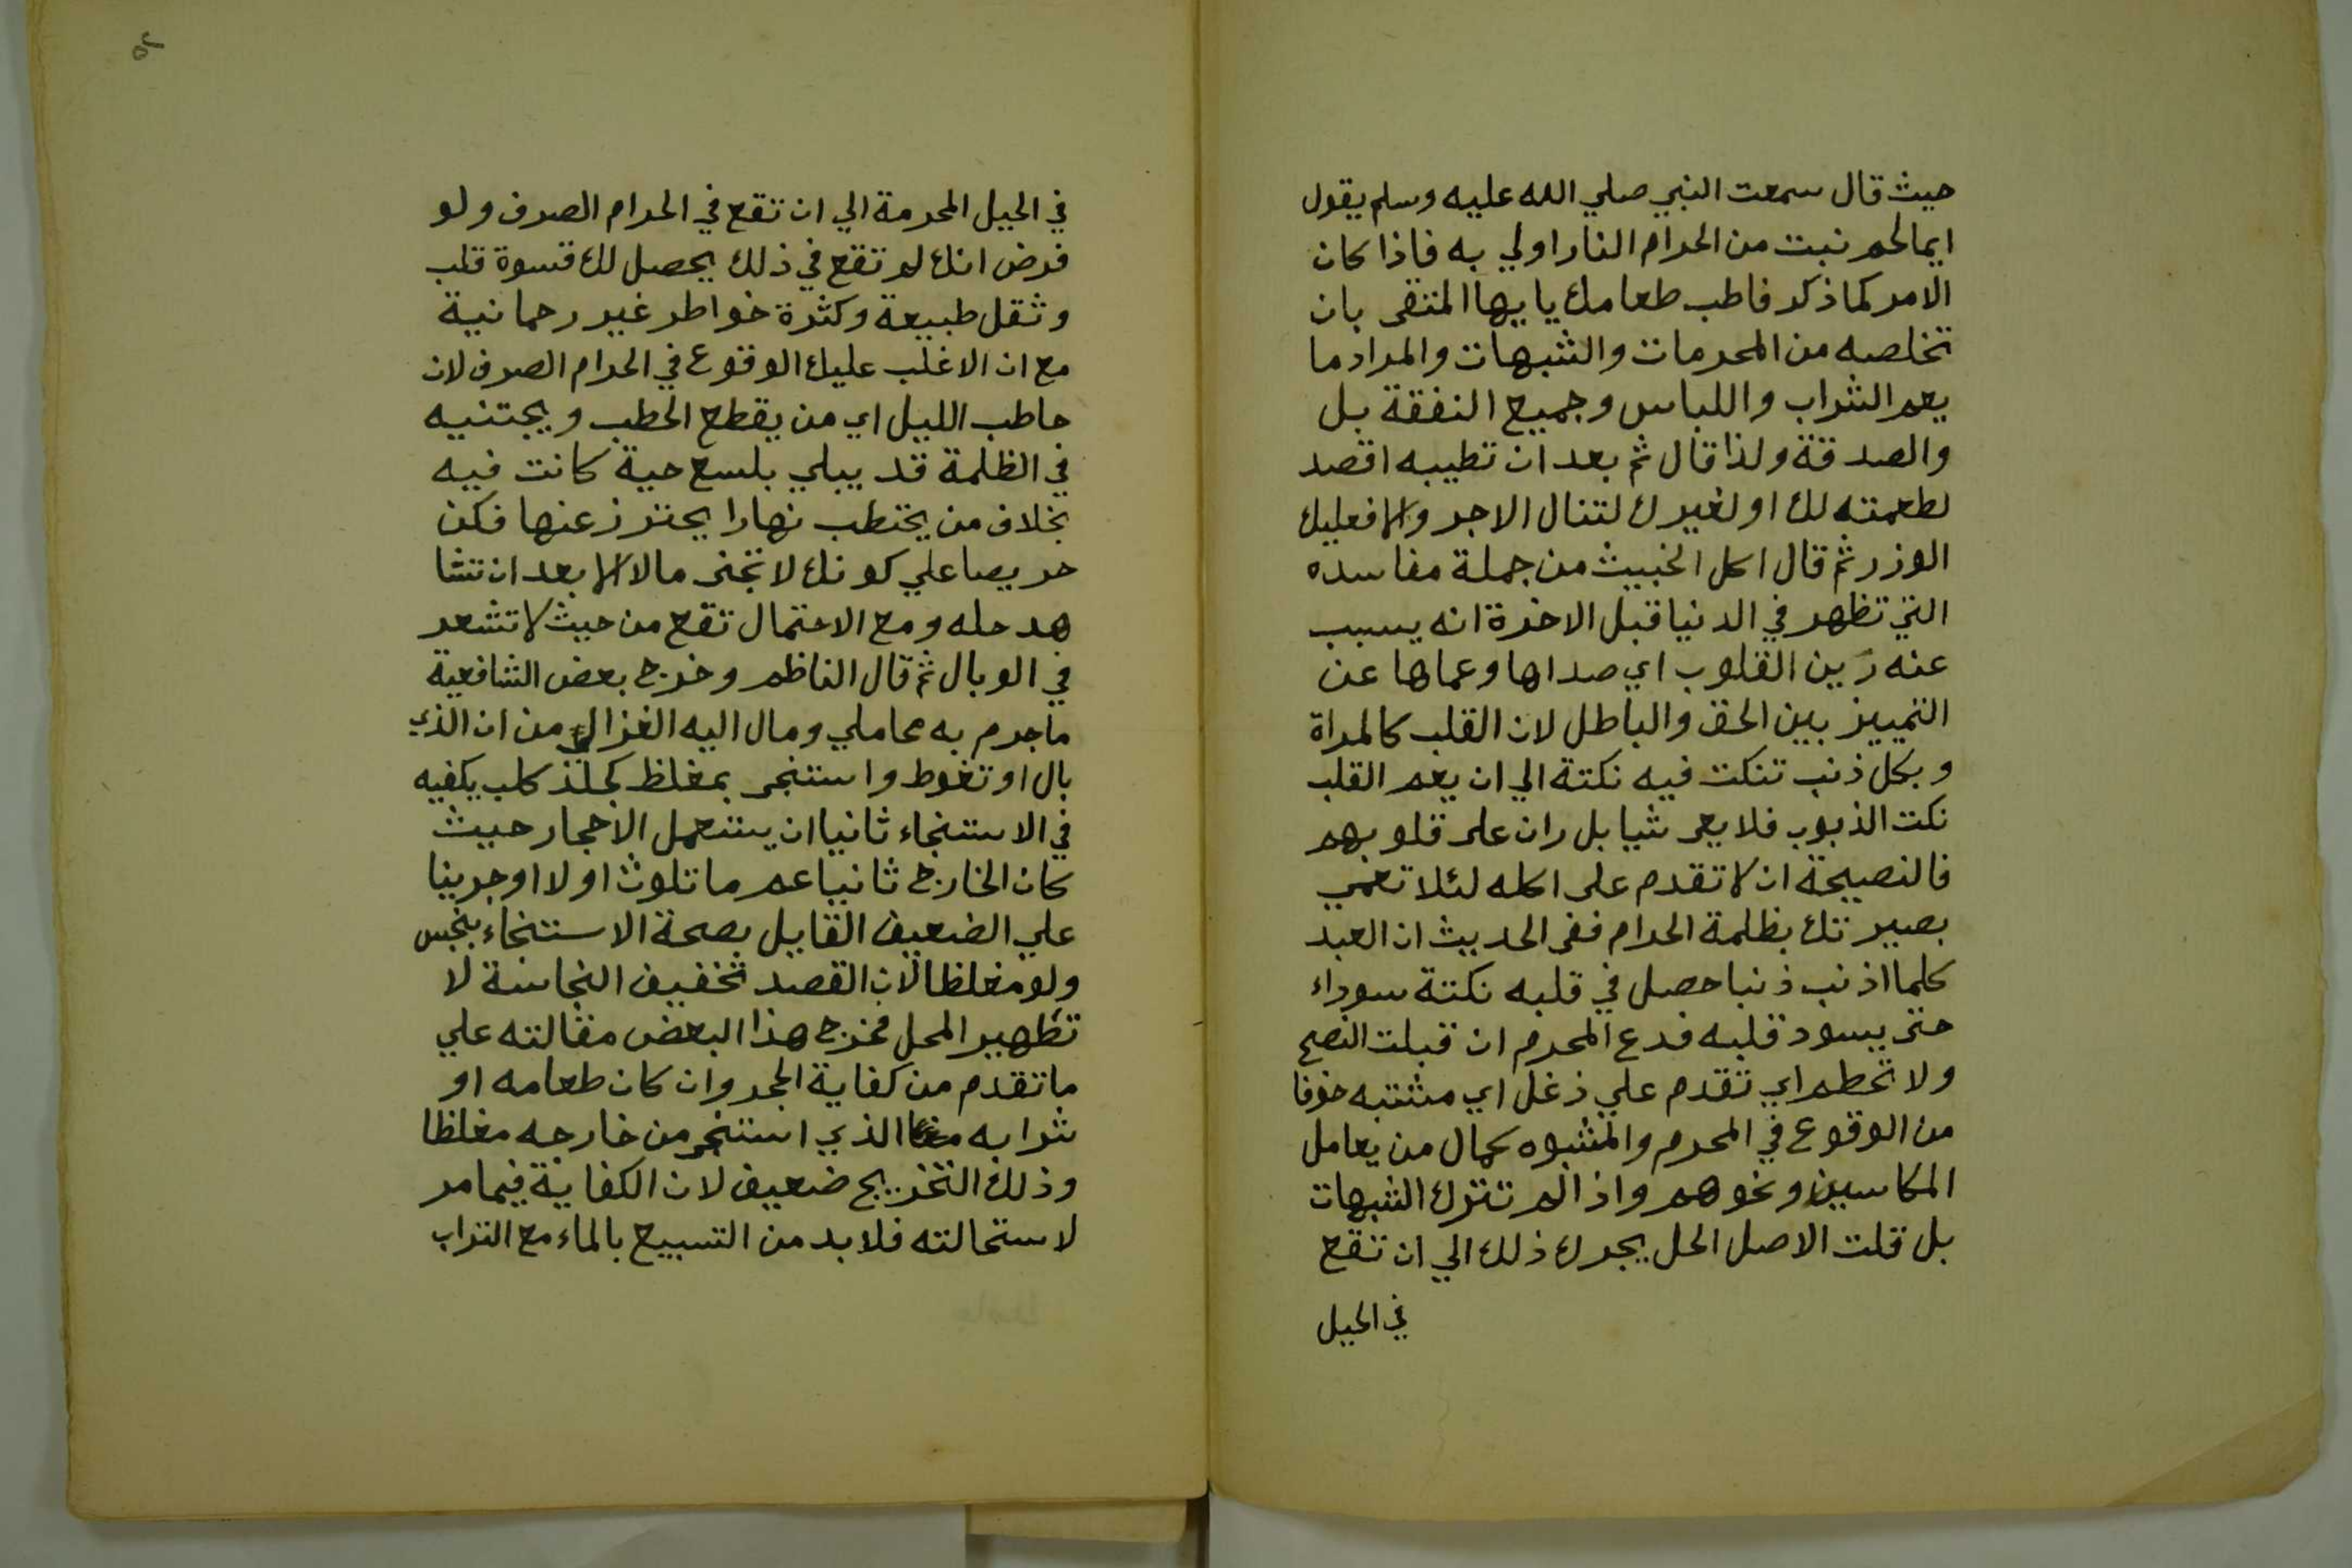 حيث قال سمعت النبي صلي الله عليه وسلم يقول
ايما لحم نبت من الحرام النار اولي به فاذا كان
الامر كما ذكر فاطب طعامك يا يها المتقى بان
تخلصه من المحرمات والشبهات والمراد ما
يعم الشراب واللباس وجميع النفقة بل
والصدقة ولذا قال ثم بعد ان تطيبه اقصد
لطعمته لك او لغيرك لتنال الاجر والا فعليك
الوزر ثم قال اكل الخبيث من جملة مفاسده
التي تظهر في الدنيا قبل الاخرة انه يسبب
عنه رين القلوب اي صداها وعماها عن
التمييز بين الحق والباطل لان القلب كالمراة
وبكل ذنب تنكت فيه نكتة الي ان يعم القلب
نكت الذبوب فلا يعى شيا بل ران على قلوبهم
فالنصيحة ان لا تقدم على اكله لئلا تعمي
بصيرتك بظلمة الحرام ففى الحديث ان العبد
كلما اذنب ذنبا حصل في قلبه نكتة سوداء
حتى يسود قلبه فدع المحرم ان قبلت النصح
ولا تحطم اي تقدم علي زغل اي مشتبه خوفا
من الوقوع في المحرم والمشبوه كمال من يعامل
المكاسين ونحوهم واذا لم تترك الشبهات
بل قلت الاصل الحل يجرك ذلك الي ان تقع
في الحيل
٥٢
في الحيل المحرمة الي ان تقع في الحرام الصرف ولو
فرض انك لم تقع في ذلك يحصل لك قسوة قلب
وثقل طبيعة وكثرة خواطر غير رحمانية
مع ان الاغلب عليك الوقوع في الحرام الصرف لان
حاطب الليل اي من يقطع الحطب ويجتنيه
في الظلمة قد يبلي بلسع حية كانت فيه
بخلاف من يحتطب نهارا يحترز عنها فكن
حريصا علي كونك لا تجنى مالا الا بعد ان تشا
هد حله ومع الاحتمال تقع من حيث لا تشعر
في الوبال ثم قال الناظم وخرج بعض الشافعية
ما جرم به محاملي ومال اليه الغزالي من ان الذي
بال او تغوط واستنجى بمغلظ كجلد كلب يكفيه
في الاستنجاء ثانيا ان يستعمل الاحجار حيث
كان الخارج ثانيا عم ما تلوث اولا او جرينا
علي الضعيف القايل بصحة الاستنجاء بنجس
ولو مغلظا لان القصد تخفيف النجاسة لا
تطهير المحل فخرج هذا البعض مقالته علي
ما تقدم من كفاية الحجر وان كان طعامه او
شرابه الذي استنجى من خارجه مغلظا
وذلك التخريج ضعيف لان الكفاية فيما مر
لاستحالته فلا بد من التسبيع بالماء مع التراب